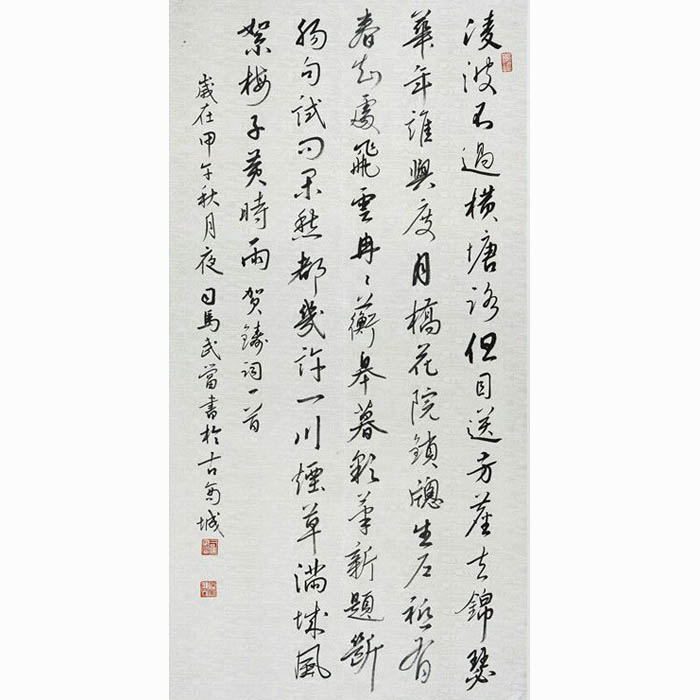 凌波不過橫塘路但目送芳塵去錦瑟
華年誰與度月橋花院鎖窗朱戶祗有
春知處飛雲冉冉蘅皋暮彩筆新題斷
腸句試問閑愁都幾許一川煙草滿城風
絮梅子黃時雨 賀鑄詞一首
歲在甲午秋月夜司馬武當書於古宛城